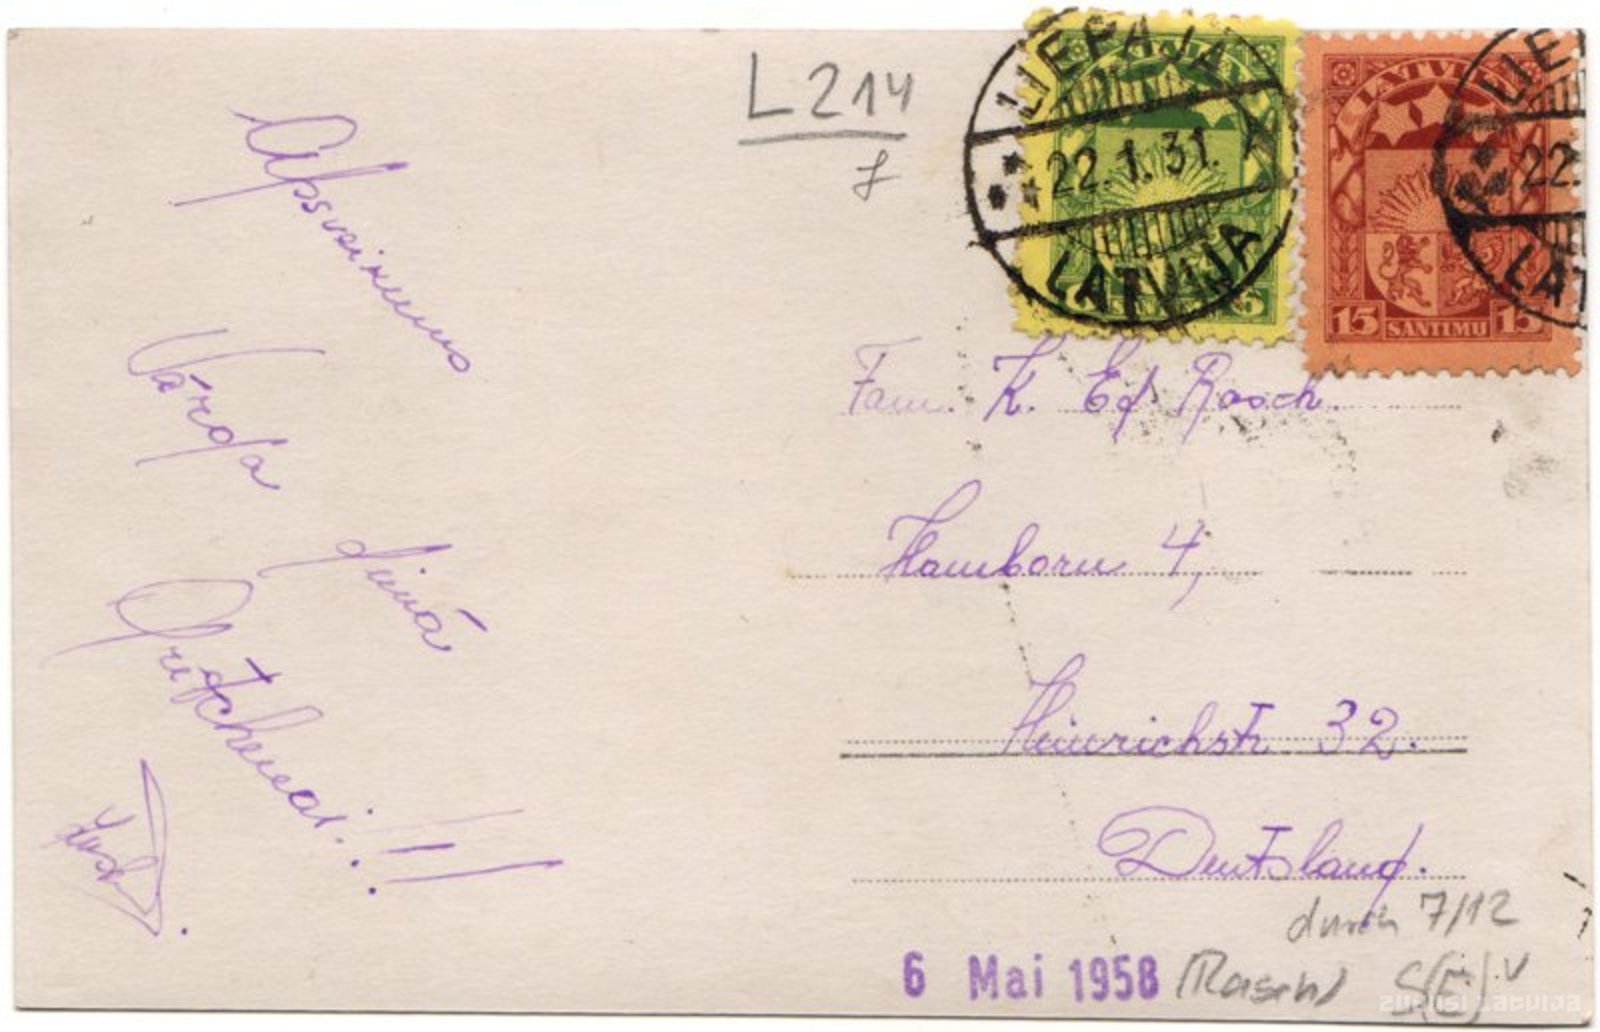 L 214
7
LIEPAJA
22.1.31.
LATVIJA
LATVIJA
15 SANTIMU 15
LIE
22.
LAT
Apsveicums
Vārda dienā
Gretchenai!!!
Fam. K. Ed. Rasch.
Hamborn 4,
Heinrichstr 32.
Deutsland.
durch 7/12
6 Mai 1958 (Rasch) S(E).V
zudusi Latvija